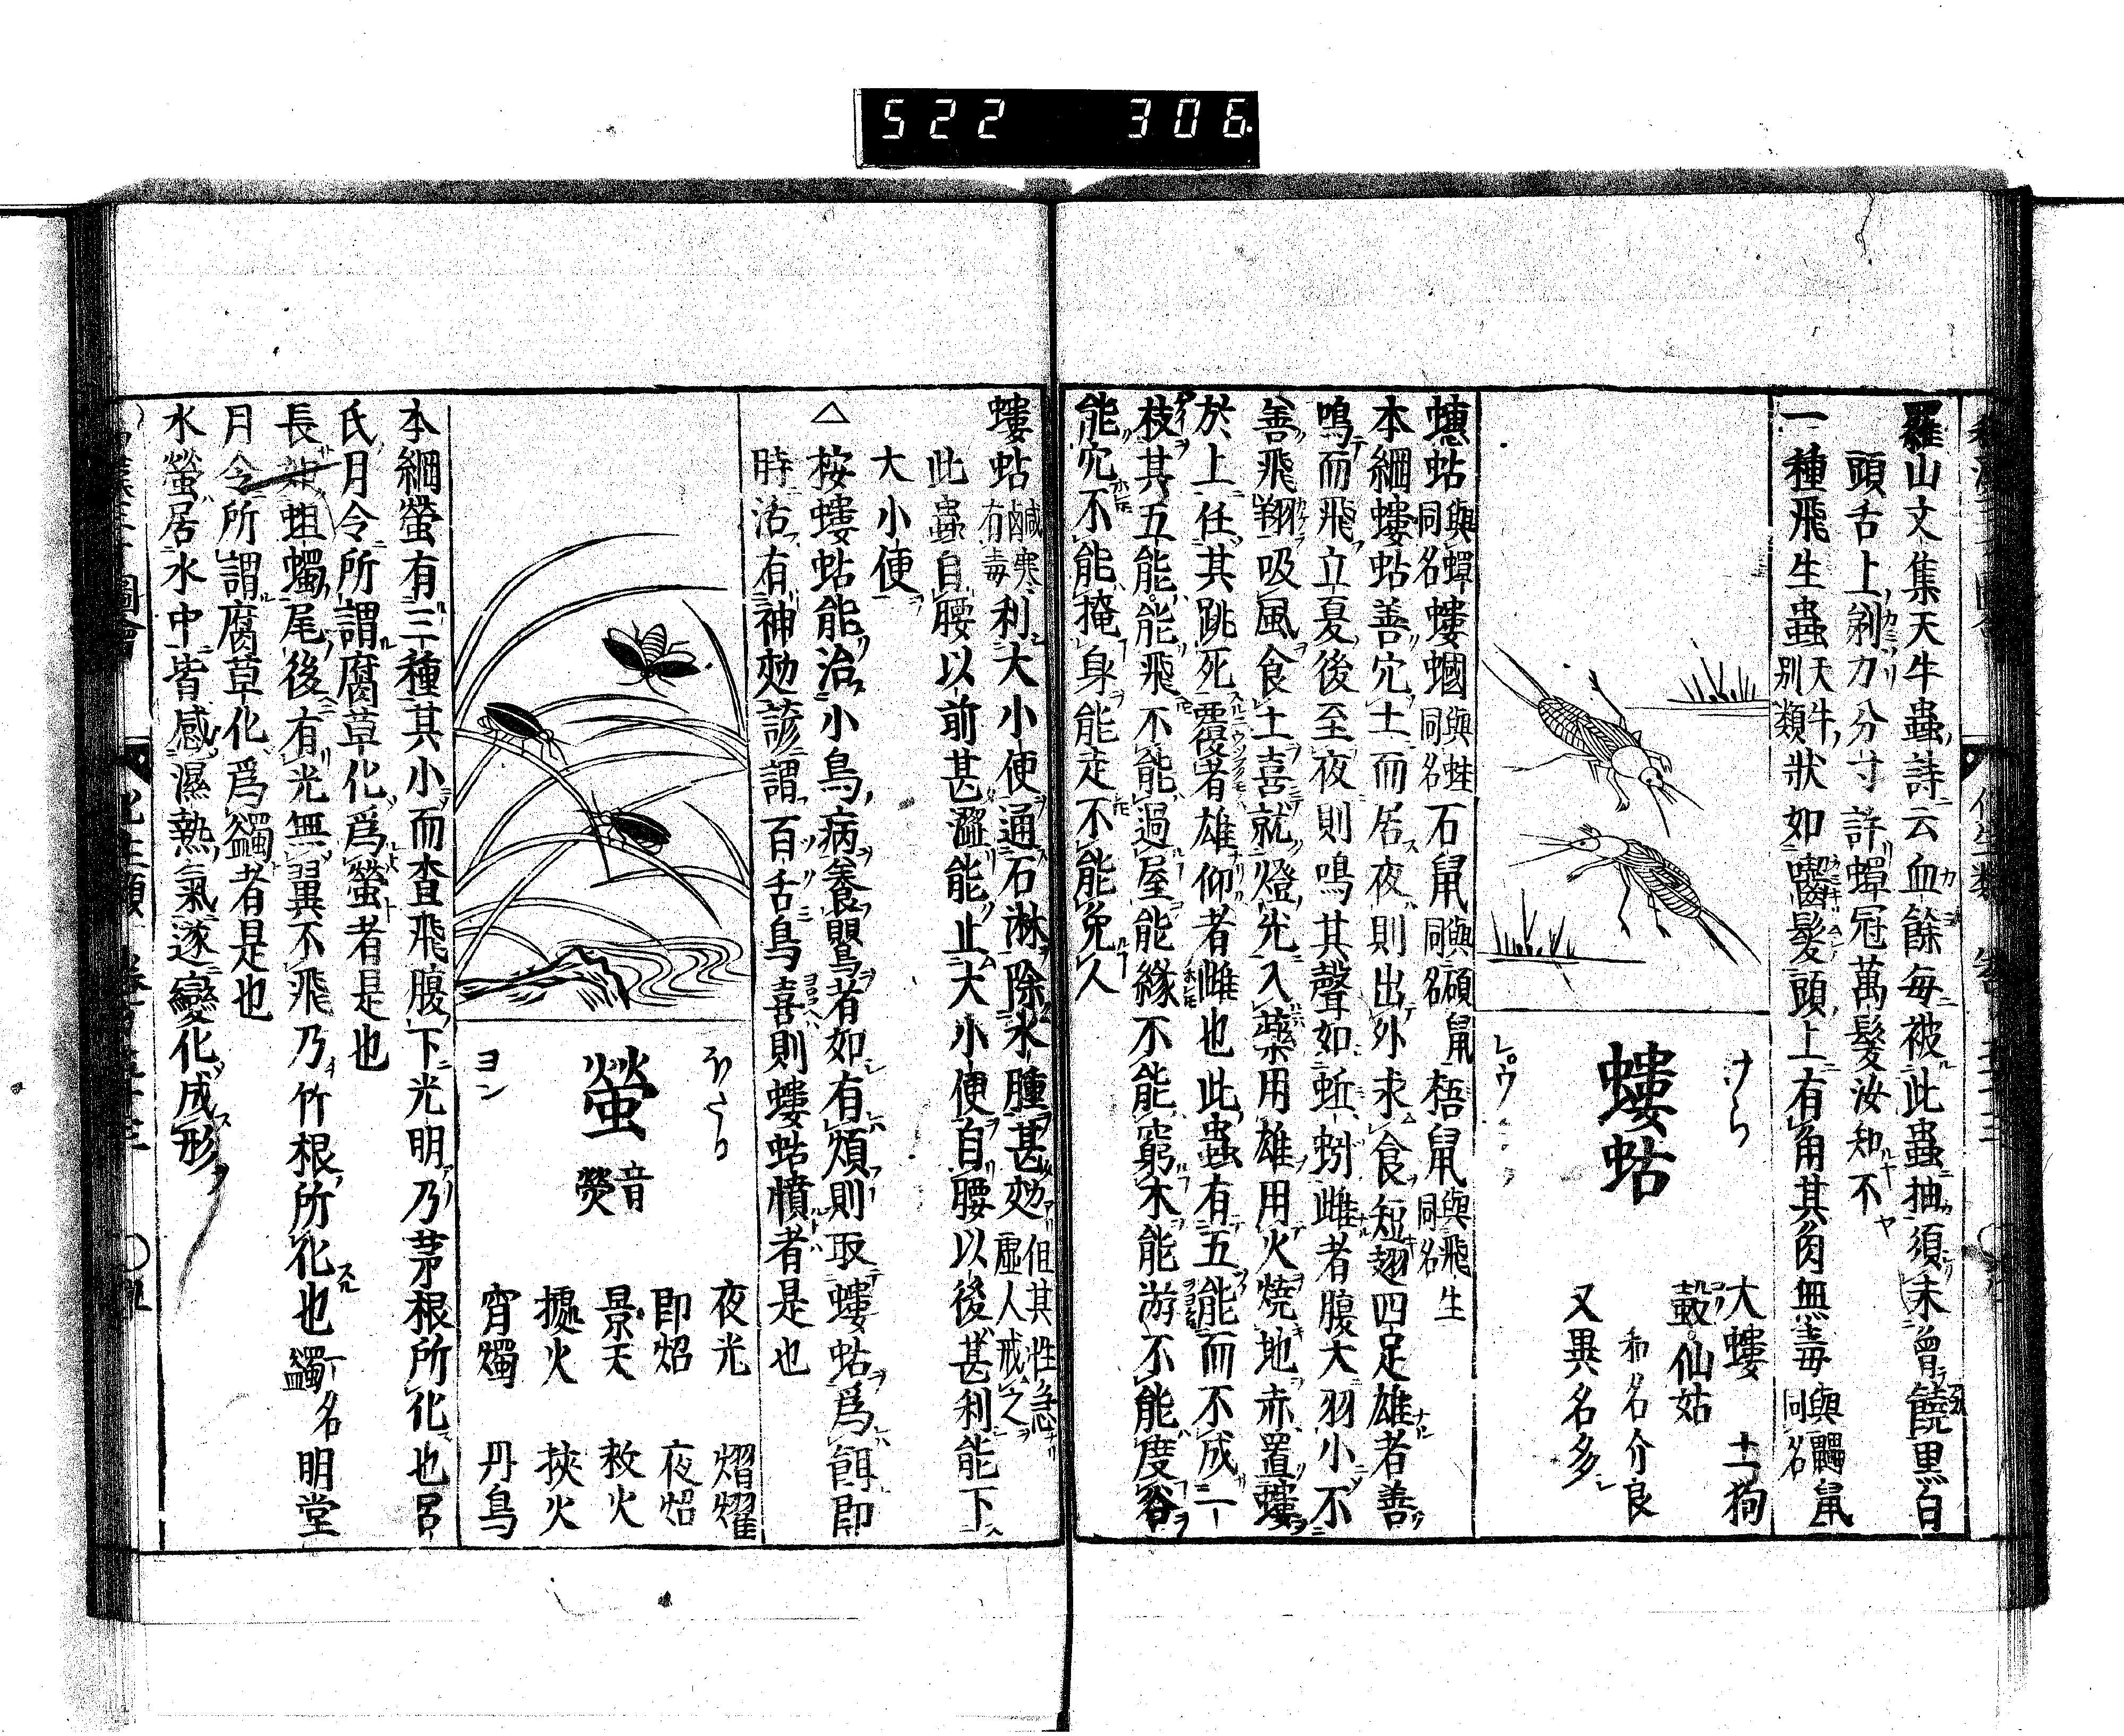 522 306
羅山文集天牛蟲詩云血餘每被此蟲抽須未曾饒黒白
頭舌上剃刀分寸許蟬冠萬髮汝知不
一種飛生蟲天牛別類狀如囓髮頭上有角其肉無毒與鼺鼠同名
けら
螻蛄
レ゚ウ
大螻 土狗
蟪蛄與蟬同名螻蟈與蛙同名石鼠與碩鼠同名梧鼠與飛生同名
仙姑
和名介良
又異名多
本綱螻蛄善穴土而居夜則出外求食短翅四足雄者善
鳴而飛立夏後至夜則鳴其聲如蚯蚓雌者腹大羽小不
善飛翔吸風食土喜就燈光入藥用雄用火燒地赤置螻
於上任其跳死覆者雄仰者雌也此蟲有五能而不成一
技其五能能飛不能過屋能緣不能窮木能游不能度谷
能穴不能掩身能走不能免人
螻蛄鹹寒有毒利大小便通石淋除水腫甚効但其性急虛人戒之
此蟲自腰以前甚澀能止大小便自腰以後甚利能下
大小便
△按螻蛄能治小鳥病養鸎者如有煩則取螻蛄爲餌即
時活有神効諺謂百舌鳥喜則螻蛄憤者是也
ほたる
螢 音熒
ヨン
夜光 熠燿
即炤 夜炤
景天 救火
據火 挾火
宵燭 丹鳥
本綱螢有三種其小而宵飛腹下光明乃茅根所化也呂
氏月令所謂腐草化爲螢者是也
長如蛆蠋尾後有光無翼不飛乃竹根所化也蠲一名明堂
月令所謂腐草化爲蠲者是也
水螢居水中皆感濕熱氣遂變化成形